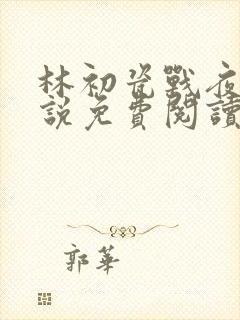 林初瓷戰夜
說免費閱讀
郭華